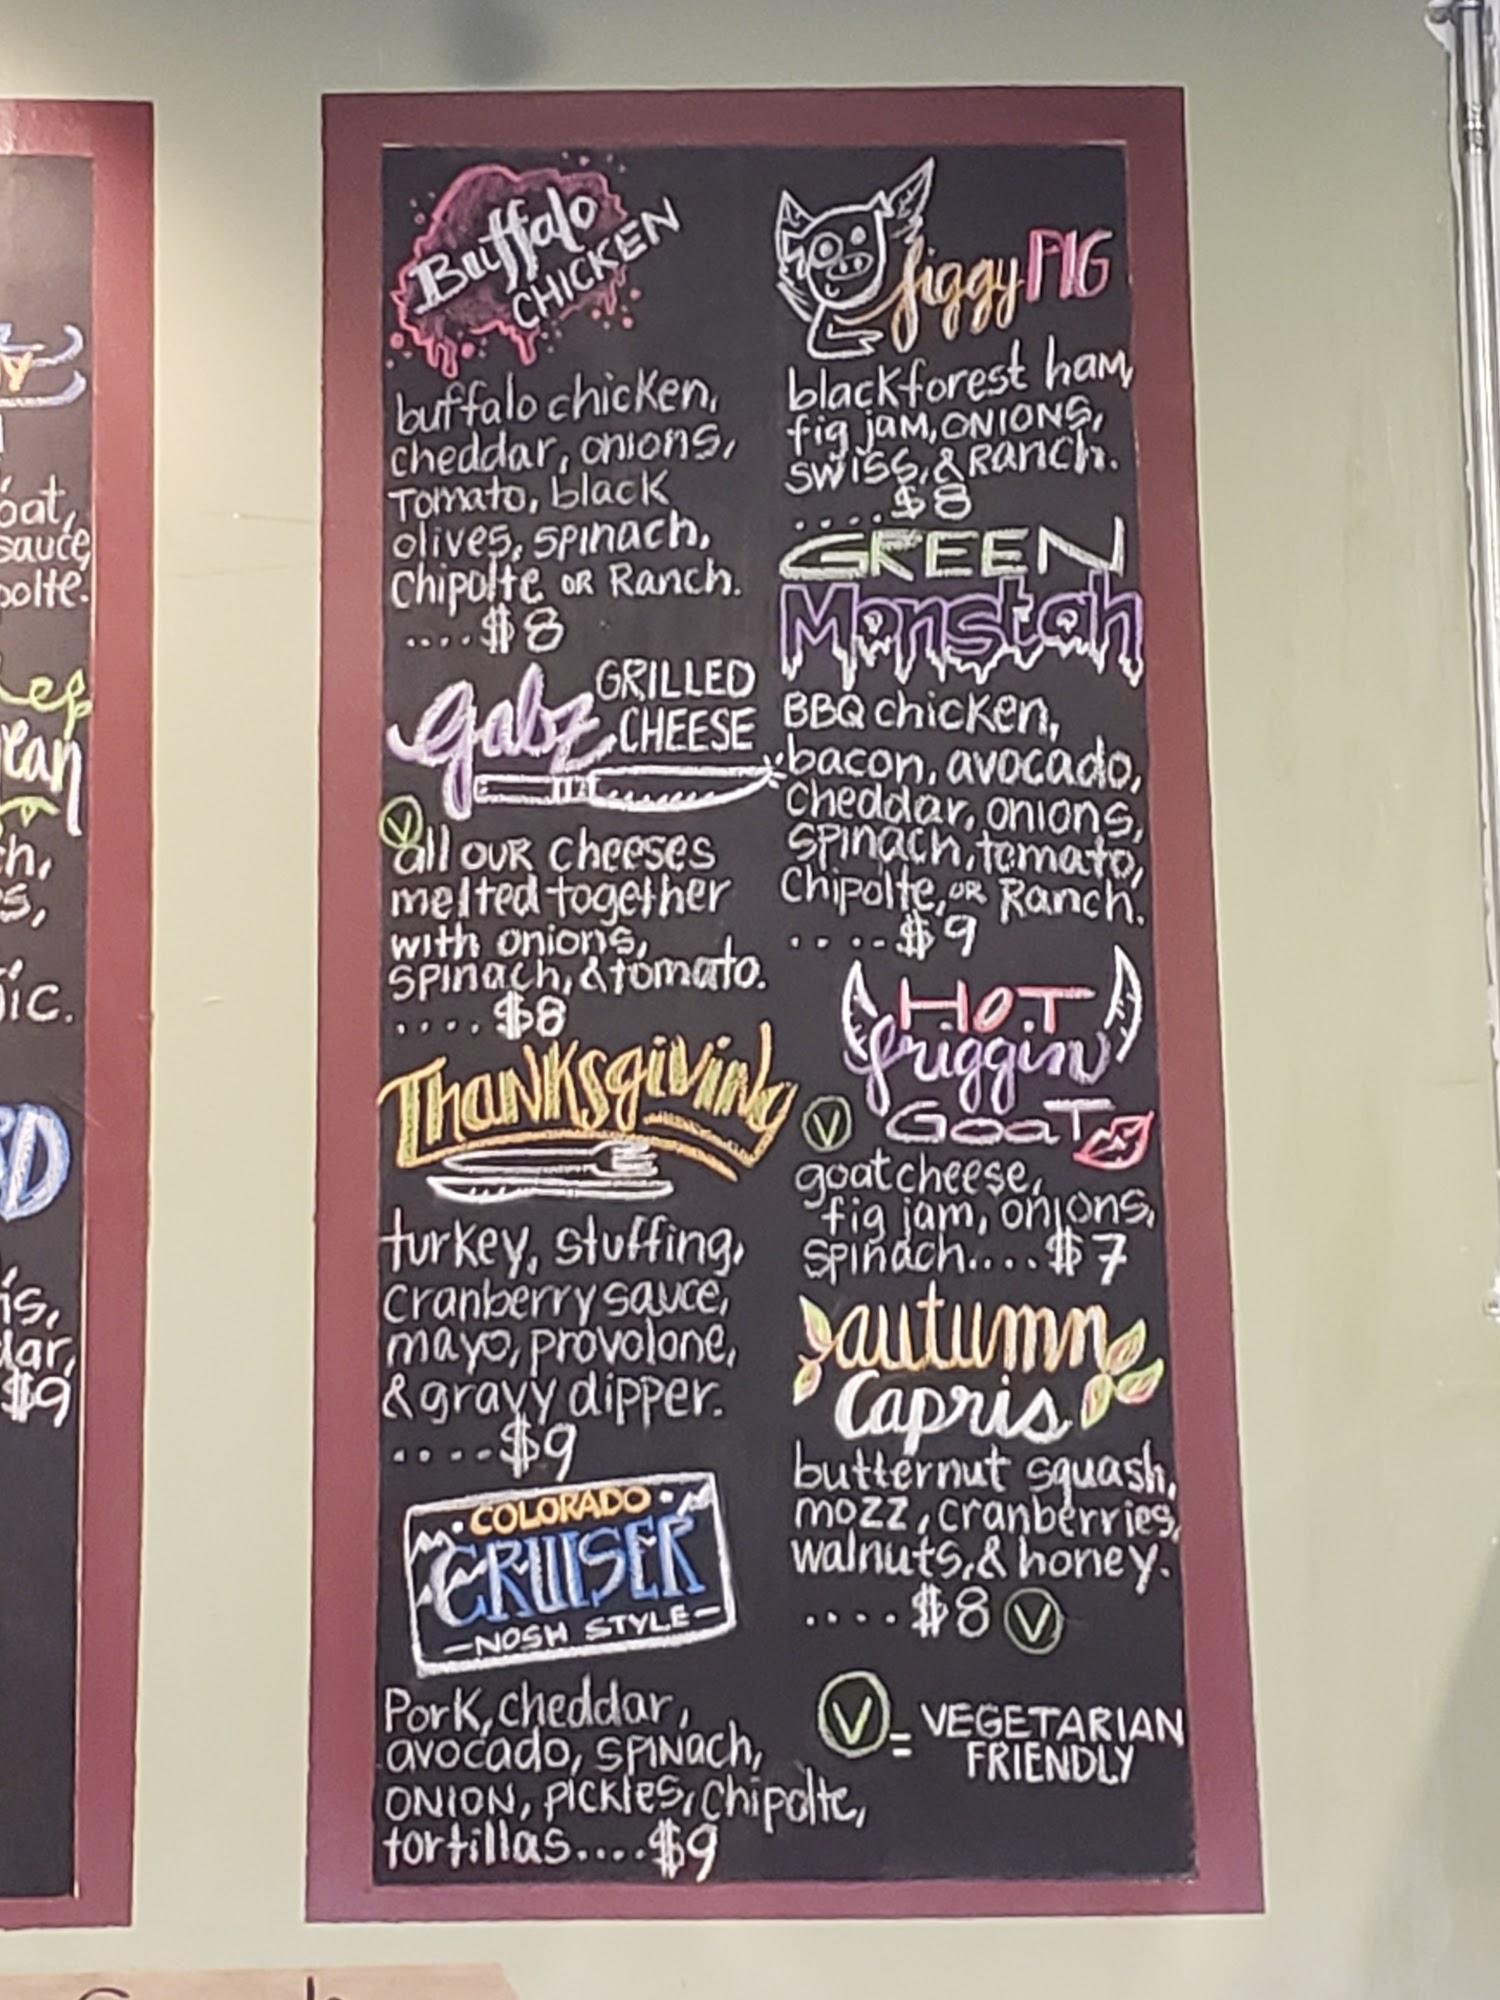 oat,
sauce,
polte.
ep
ean
ch,
s,
ic.
is,
dar,
$9
Buffalo
CHICKEN
buffalo chicken,
cheddar, onions,
Tomato, black
olives, spinach,
Chipolte OR Ranch.
....$8
gabz GRILLED
CHEESE
V
all OUR cheeses
melted together
with onions,
spinach, & tomato.
....$8
Thanksgiving
turkey, stuffing,
cranberry sauce,
mayo, provolone,
& gravy dipper.
....$9
COLORADO
CRUISER
-NOSH STYLE-
Pork, cheddar,
avocado, spinach,
ONION, pickles, Chipolte,
tortillas....$9
figgy PIG
blackforest ham,
fig jam, ONIONS,
swiss, & Ranch.
....$8
GREEN
Monstah
BBQ chicken,
bacon, avocado,
cheddar, onions,
spinach, tomato,
Chipolte, OR Ranch.
....$9
HOT
friggin
V GOAT
goat cheese,
fig jam, onions,
spinach....$7
autumn
Capris
butternut squash,
mozz, cranberries,
walnuts, & honey.
....$8 V
V = VEGETARIAN
FRIENDLY